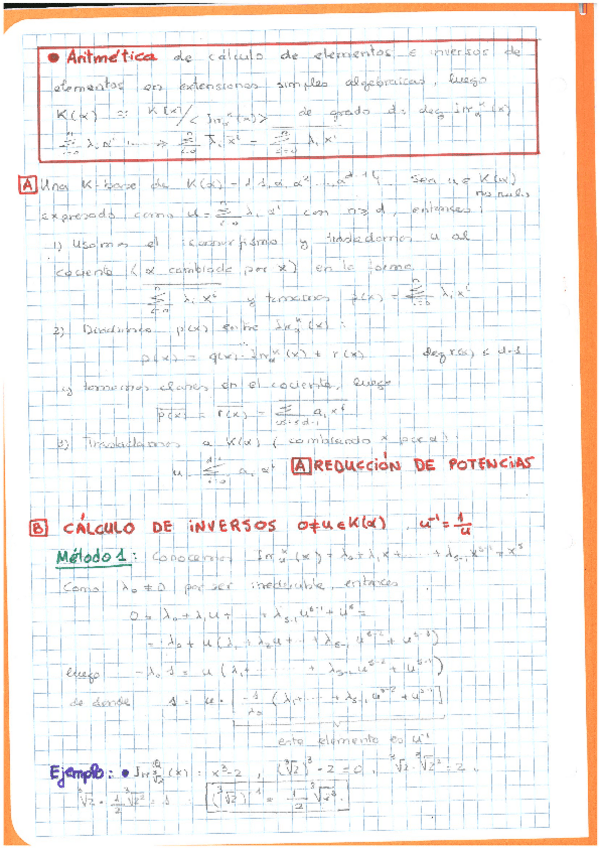 • Aritmética de cálculo de elementos e inversos de
elementos en extensiones simples algebraicas, luego
K(α) ≅ K[x]/<Irr (x)> de grado d = deg Irr (x)
A Una K-base de K(α) = 1, α, α², ..., sea u ∈ K(α)
no nulo
expresado como u = Σ λᵢ αⁱ con n ≥ d, entonces:
1) Usamos el isomorfismo y trasladamos u al
cociente (α cambiada por x) en la forma
Σ λᵢ xⁱ y tomamos p(x) = Σ λᵢ xⁱ
2) Dividimos p(x) entre Irr (x):
p(x) = q(x) · Irr (x) + r(x) deg r(x) ≤ d-1
y tomamos clases en el cociente, luego
p(x) = r(x) = Σ aᵢ xⁱ
3) Trasladamos a K(α) (cambiando x por α)
u = Σ aᵢ αⁱ
A REDUCCIÓN DE POTENCIAS
B CÁLCULO DE INVERSOS 0≠u∈K(α), u⁻¹ = 1/u
Método 1: Conocemos Irr (x) = λ₀ + λ₁x + ... + λₛ₋₁xˢ⁻¹ + xˢ
Como λ₀ ≠ 0 por ser irreducible, entonces
0 = λ₀ + λ₁u + ... + λₛ₋₁uˢ⁻¹ + uˢ =
= λ₀ + u(λ₁ + λ₂u + ... + λₛ₋₁uˢ⁻² + uˢ⁻¹)
luego -λ₀ · 1 = u(λ₁ + ... + λₛ₋₁uˢ⁻² + uˢ⁻¹)
de donde 1 = u · [-1/λ₀ (λ₁ + ... + λₛ₋₁uˢ⁻² + uˢ⁻¹)]
este elemento es u⁻¹
Ejemplo: • Irr (x) = x³-2, (∛2)³ - 2 = 0, ∛2 · ∛2² = 2,
∛2 · 1/2 ∛2² = 1 (∛2)⁻¹ = 1/2 ∛2².